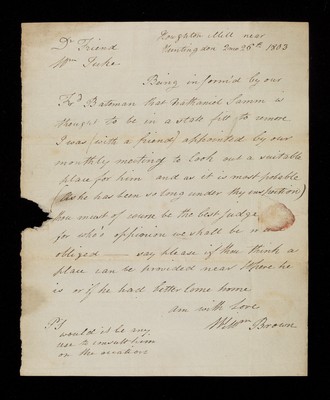 Houghton Mill near
Huntingdon 2mo 26th 1803
Dr Friend
Wm Tuke
Being inform'd by our
Fd Bateman that Nathaniel Samm is
thought to be in a state fitt to remove
I was (with a friend) appointed by our
monthly meeting to look out a suitable
place for him and as it is most posable
(as he has been so long under thy inspection)
thou must of course be the best judge,
for who's oppinion we shall be
obliged — say please if thou think a
place can be provided near where he
is or if he had better come home
am with Love
Wm Brown
PS
would it be any
use to consult him
on the ocation